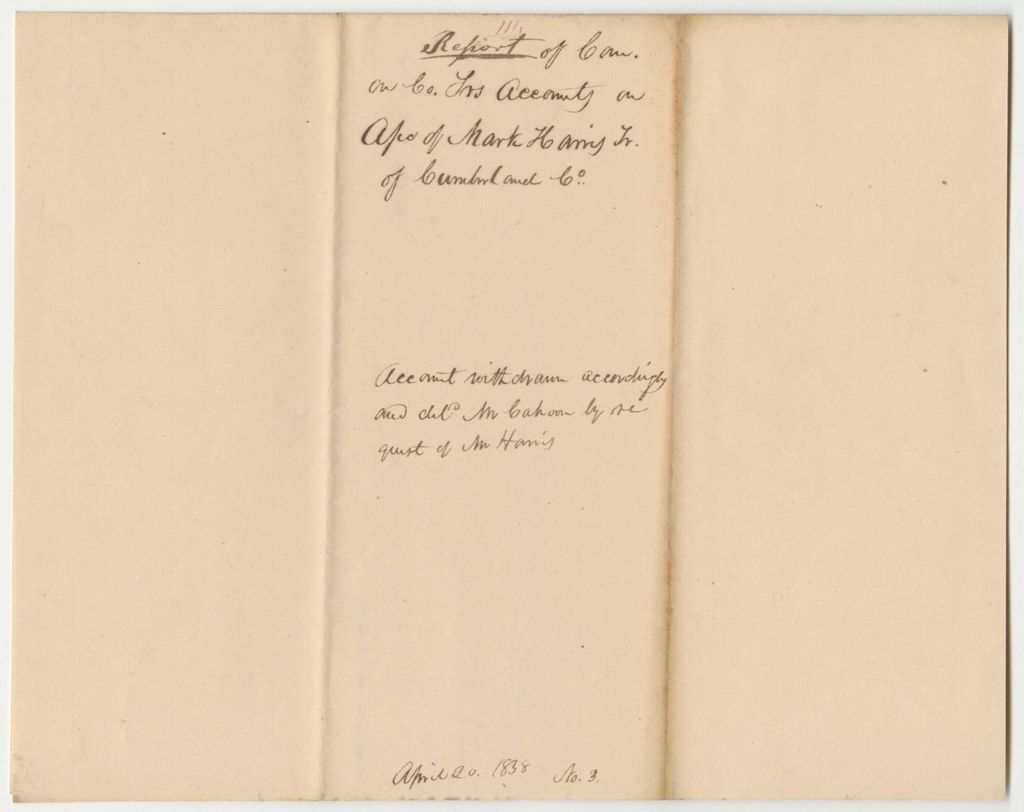 111,
Report of Com.
on Co. Trs Accounts on
Apc of Mark Harris Tr.
of Cumberland Co.
Account withdrawn accordingly
and deld Mr Cahoon by re
quest of Mr Harris
April 20. 1838 No. 3.